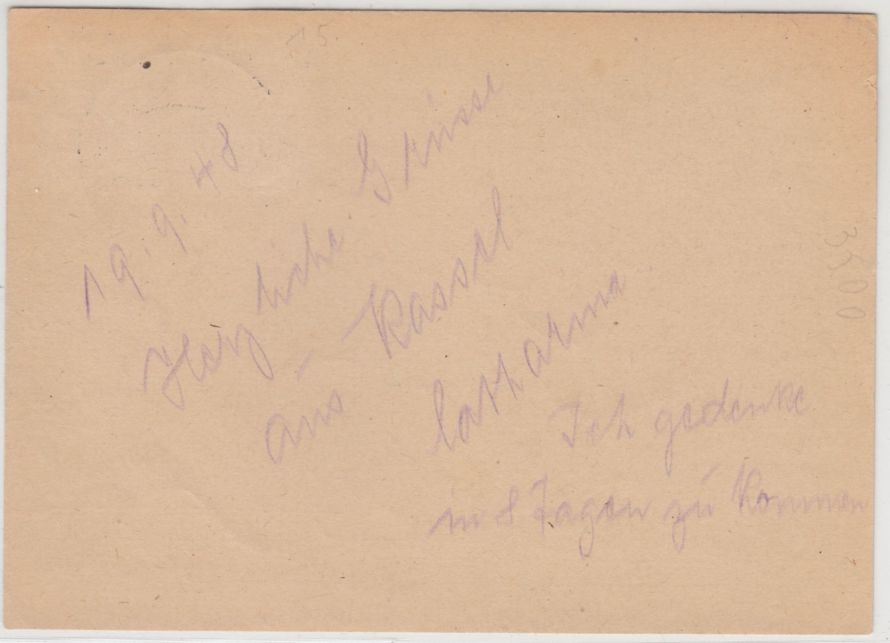 15.
19.9.48
Herzliche Grüsse
aus Kassel
Ich gedenke
in 8 Tagen zu kommen
3500